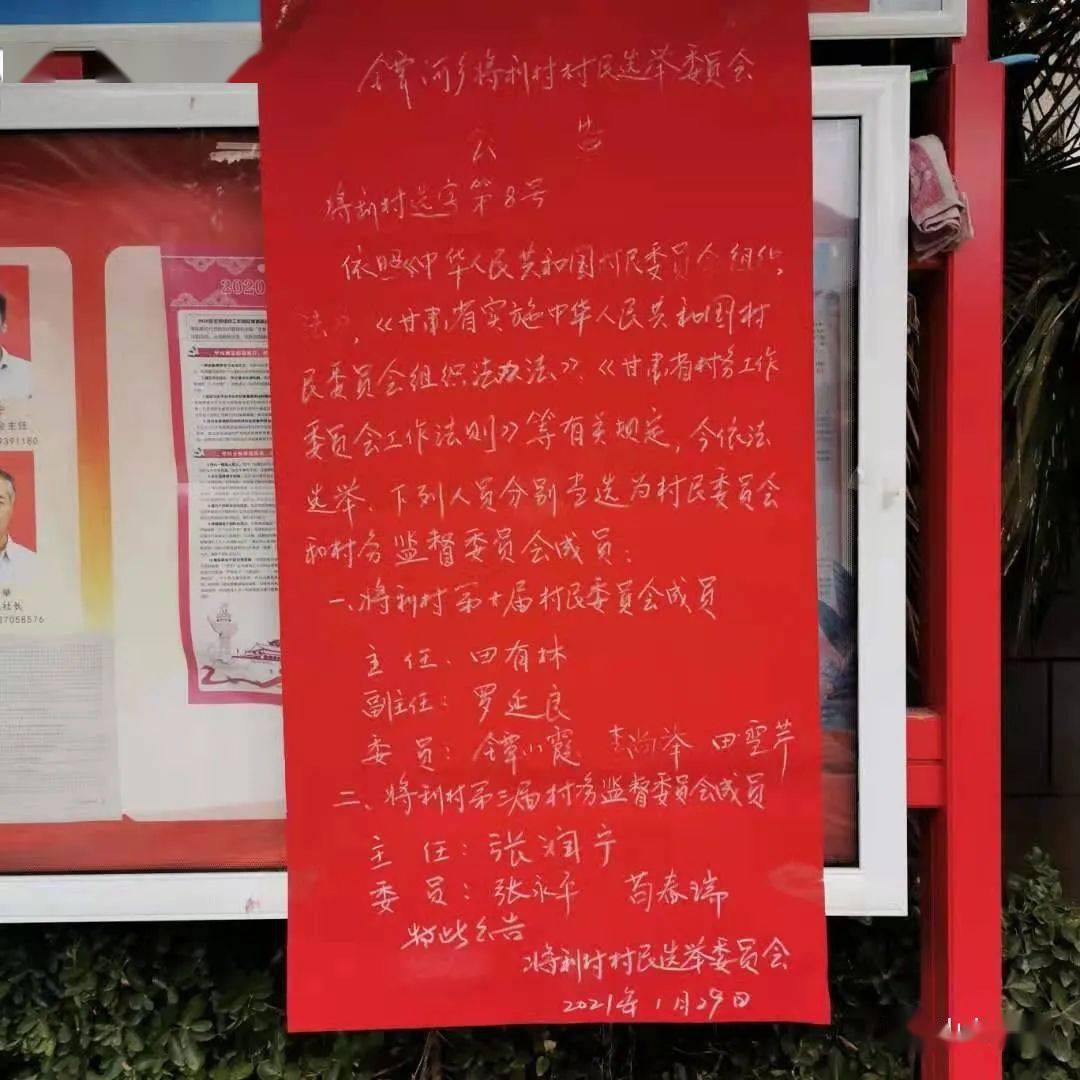 镡河乡将利村村民选举委员会
公 告
将利村选字第8号
依照《中华人民共和国村民委员会组织
法》,《甘肃省实施中华人民共和国村
民委员会组织法办法》、《甘肃省村务工作
委员会工作法则》等有关规定,今依法
选举、下列人员分别当选为村民委员会
和村务监督委员会成员:
一、将利村第十届村民委员会成员
主 任、田有林
副主任:罗延良
委 员:镡小霞 李尚举 田雪芹
二、将利村第三届村务监督委员会成员
主 任:张润宁
委 员:张永平 苟春瑞
特此公告
将利村村民选举委员会
2021年1月29日
2020
主任
9391180
举
社长
7058576